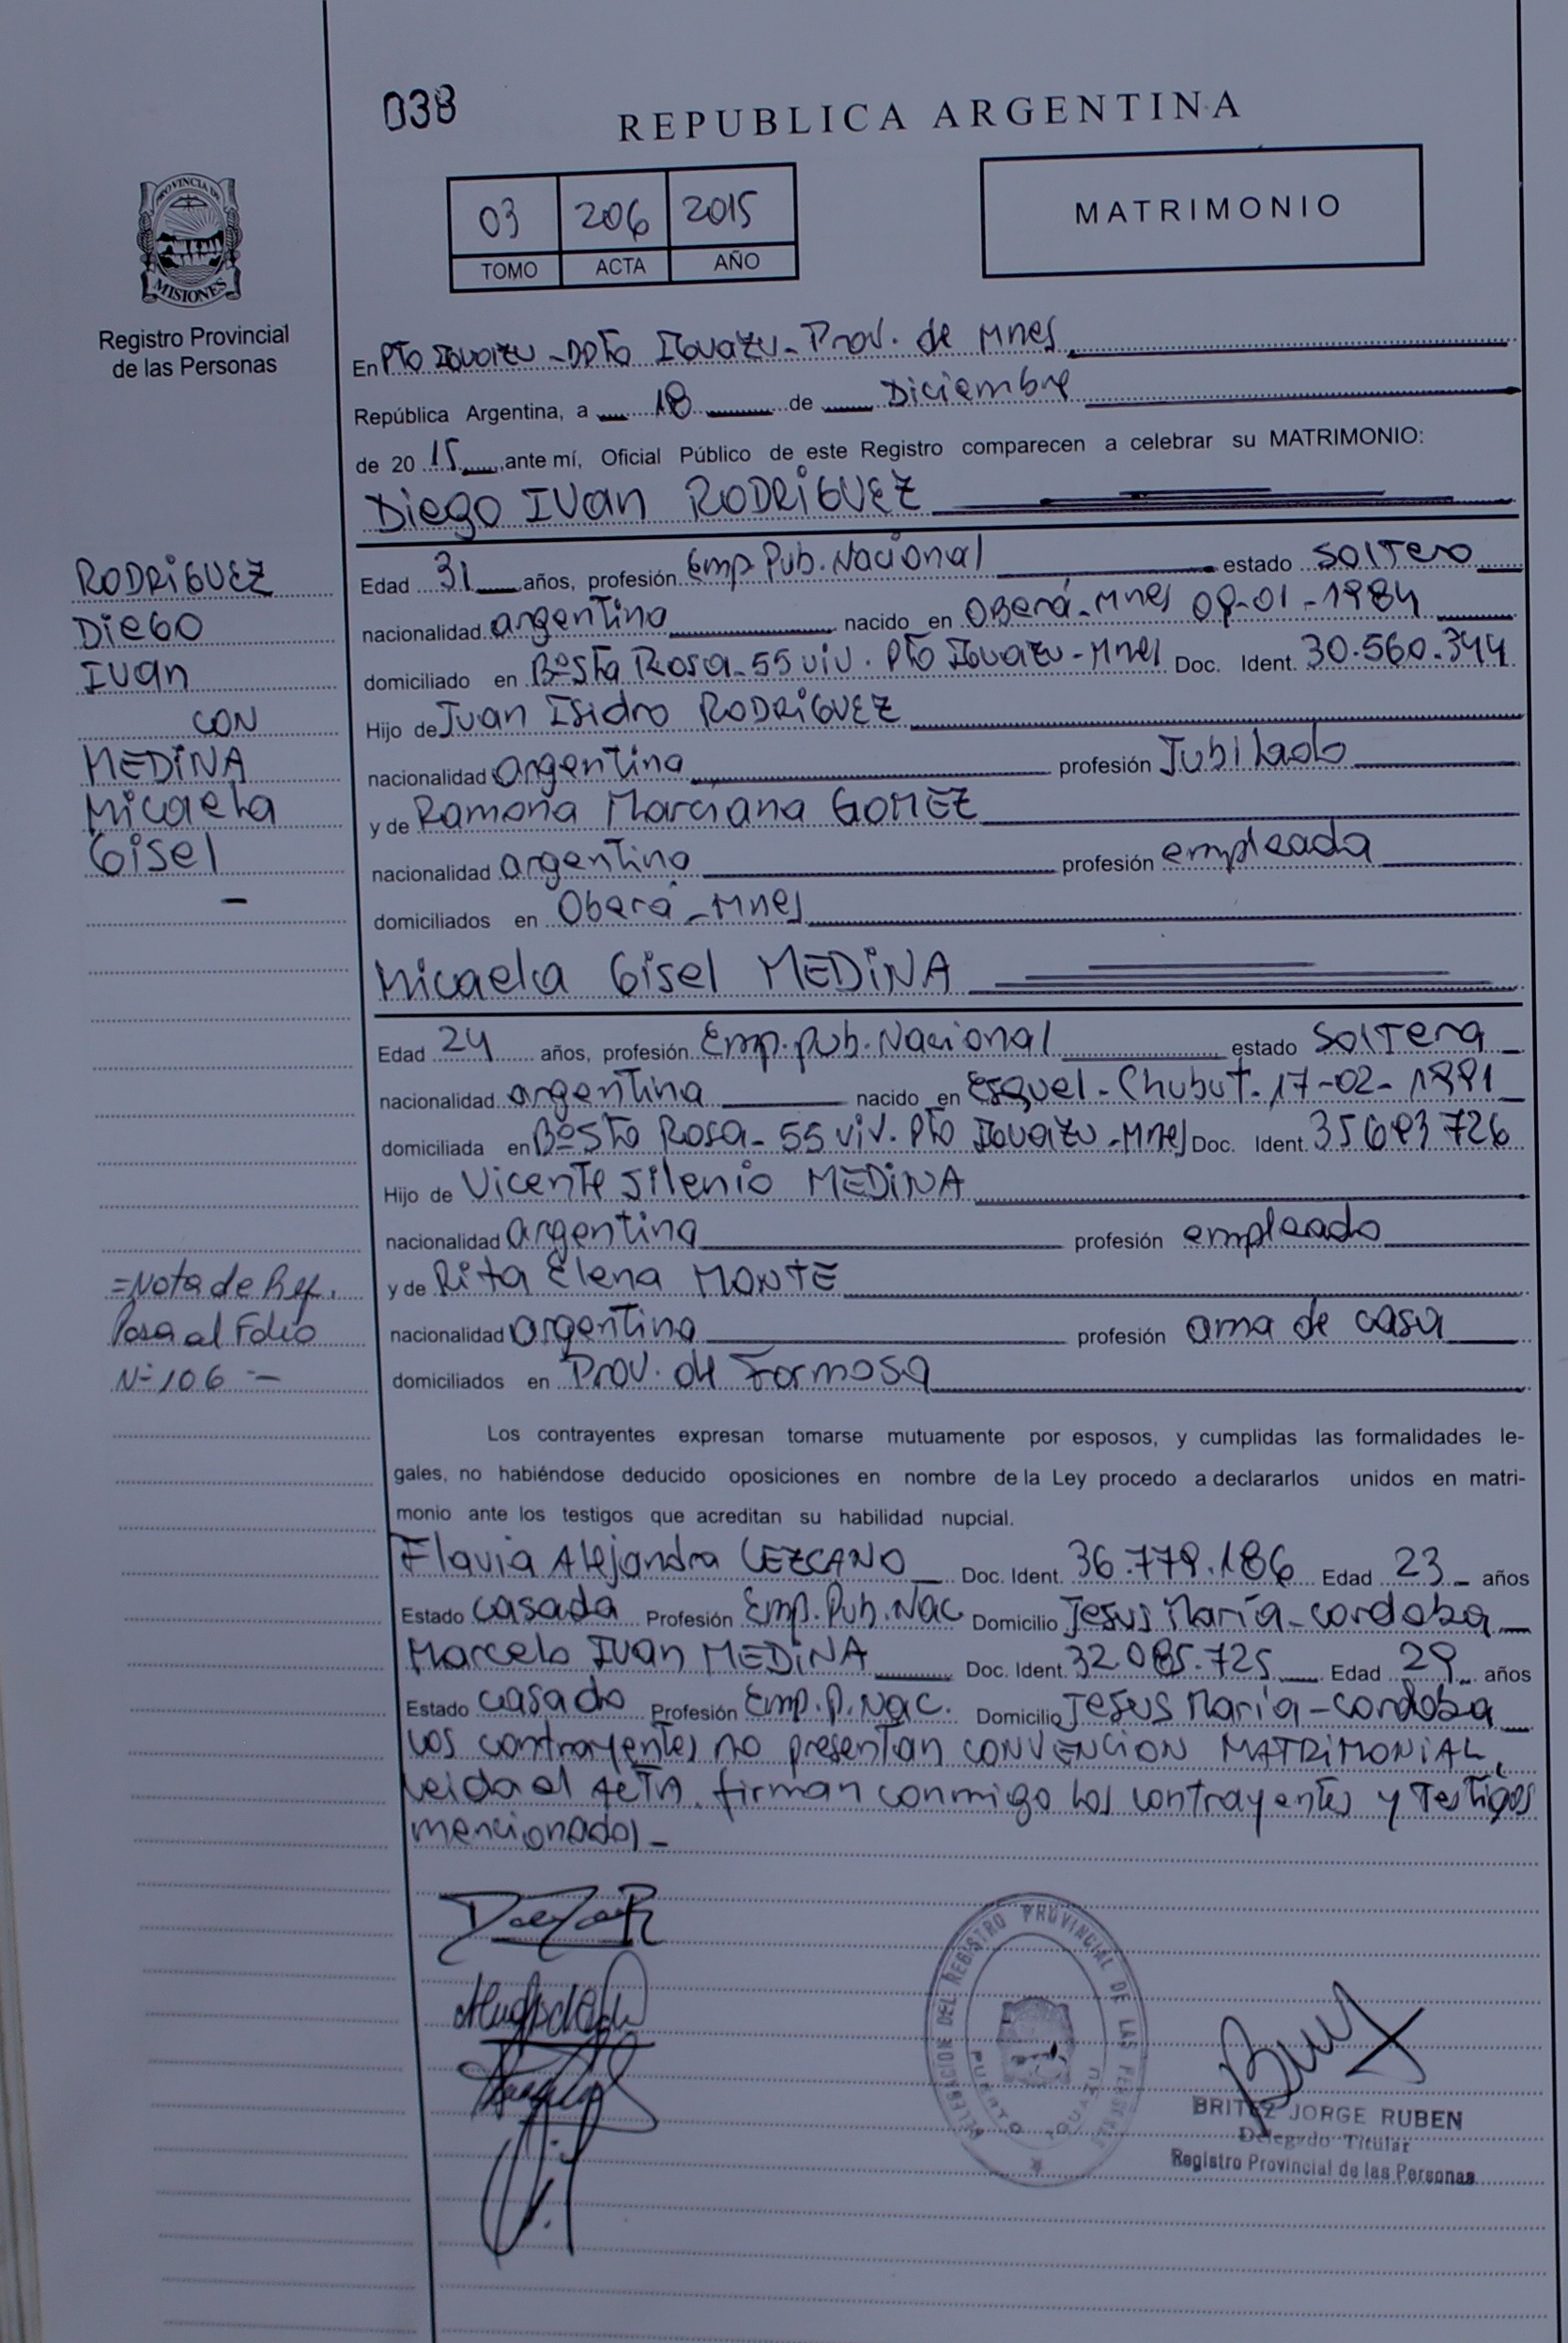 038
REPUBLICA ARGENTINA
PROVINCIA DE
MISIONES
03 206 2015
TOMO ACTA AÑO
MATRIMONIO
Registro Provincial
de las Personas
En Pto Iguazu - Dpto Iguazu - Prov. de Mnes
República Argentina, a 18 de Diciembre
de 20 15 ante mí, Oficial Público de este Registro comparecen a celebrar su MATRIMONIO:
Diego Ivan RODRIGUEZ
RODRIGUEZ
Diego
Ivan
CON
MEDINA
Micaela
Gisel
-
Edad 31 años, profesión Emp Pub. Nacional estado soltero
nacionalidad argentino nacido en Oberá - Mnes 09-01-1984
domiciliado en Bº Sta Rosa - 55 viv. Pto Iguazu - Mnes Doc. Ident. 30.560.344
Hijo de Juan Isidro RODRIGUEZ
nacionalidad argentina profesión Jubilado
y de Ramona Marciana GOMEZ
nacionalidad argentina profesión empleada
domiciliados en Oberá - Mnes
Micaela Gisel MEDINA
Edad 24 años, profesión Emp. Pub. Nacional estado soltera
nacionalidad argentina nacido en Esquel - Chubut - 17-02-1991
domiciliada en Bº Sta Rosa - 55 viv. Pto Iguazu - Mnes Doc. Ident. 35693726
Hijo de Vicente Silenio MEDINA
nacionalidad argentina profesión empleado
y de Rita Elena MONTE
nacionalidad argentina profesión ama de casa
domiciliados en Prov. de Formosa
= Nota de Ref.
Pasa al Folio
Nº 106 =
Los contrayentes expresan tomarse mutuamente por esposos, y cumplidas las formalidades le-
gales, no habiéndose deducido oposiciones en nombre de la Ley procedo a declararlos unidos en matri-
monio ante los testigos que acreditan su habilidad nupcial.
Flavia Alejandra LEZCANO Doc. Ident. 36.779.186 Edad 23 años
Estado casada Profesión Emp. Pub. Nac Domicilio Jesus María - cordoba
Marcelo Ivan MEDINA Doc. Ident. 32.085.725 Edad 29 años
Estado casado Profesión Emp. P. Nac. Domicilio Jesus María - cordoba
Los contrayentes no presentan CONVENCION MATRIMONIAL,
Leida el acta, firman conmigo los contrayentes y Testigos
mencionados -
DELEGACION DEL REGISTRO PROVINCIAL DE LAS PERSONAS
PUERTO IGUAZU
BRITEZ JORGE RUBEN
Delegado Titular
Registro Provincial de las Personas